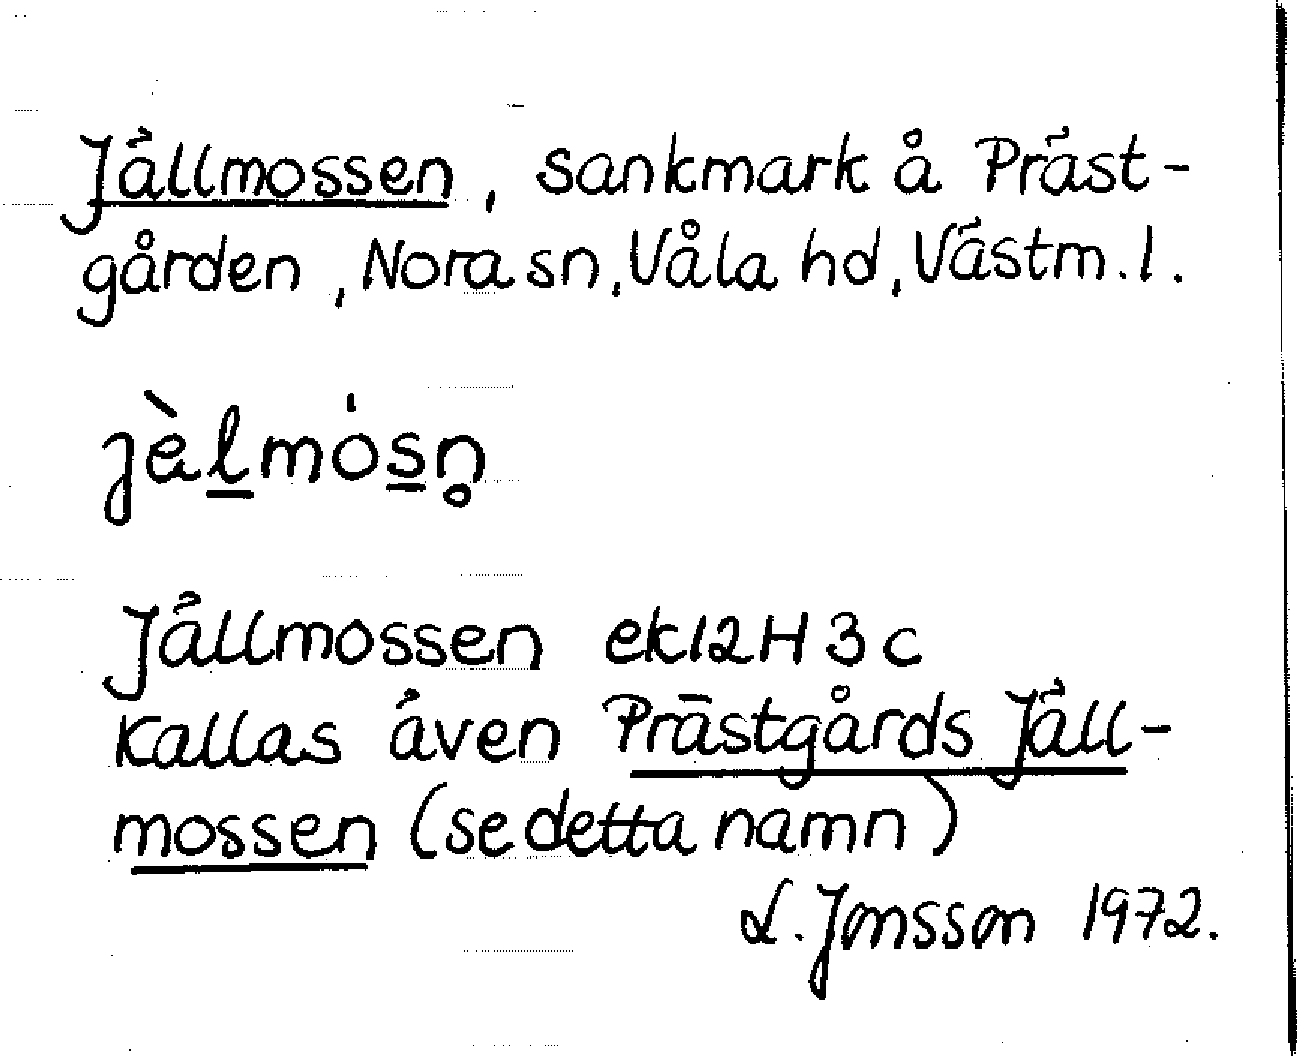 Jällmossen, sankmark å Präst-
gården, Nora sn, Våla hd, Västm. l.
jæ̀l̲mós̲n̥
Jällmossen ek 12H 3c
Kallas även Prästgårds Jäll-
mossen (se detta namn)
L. Jonsson 1972.